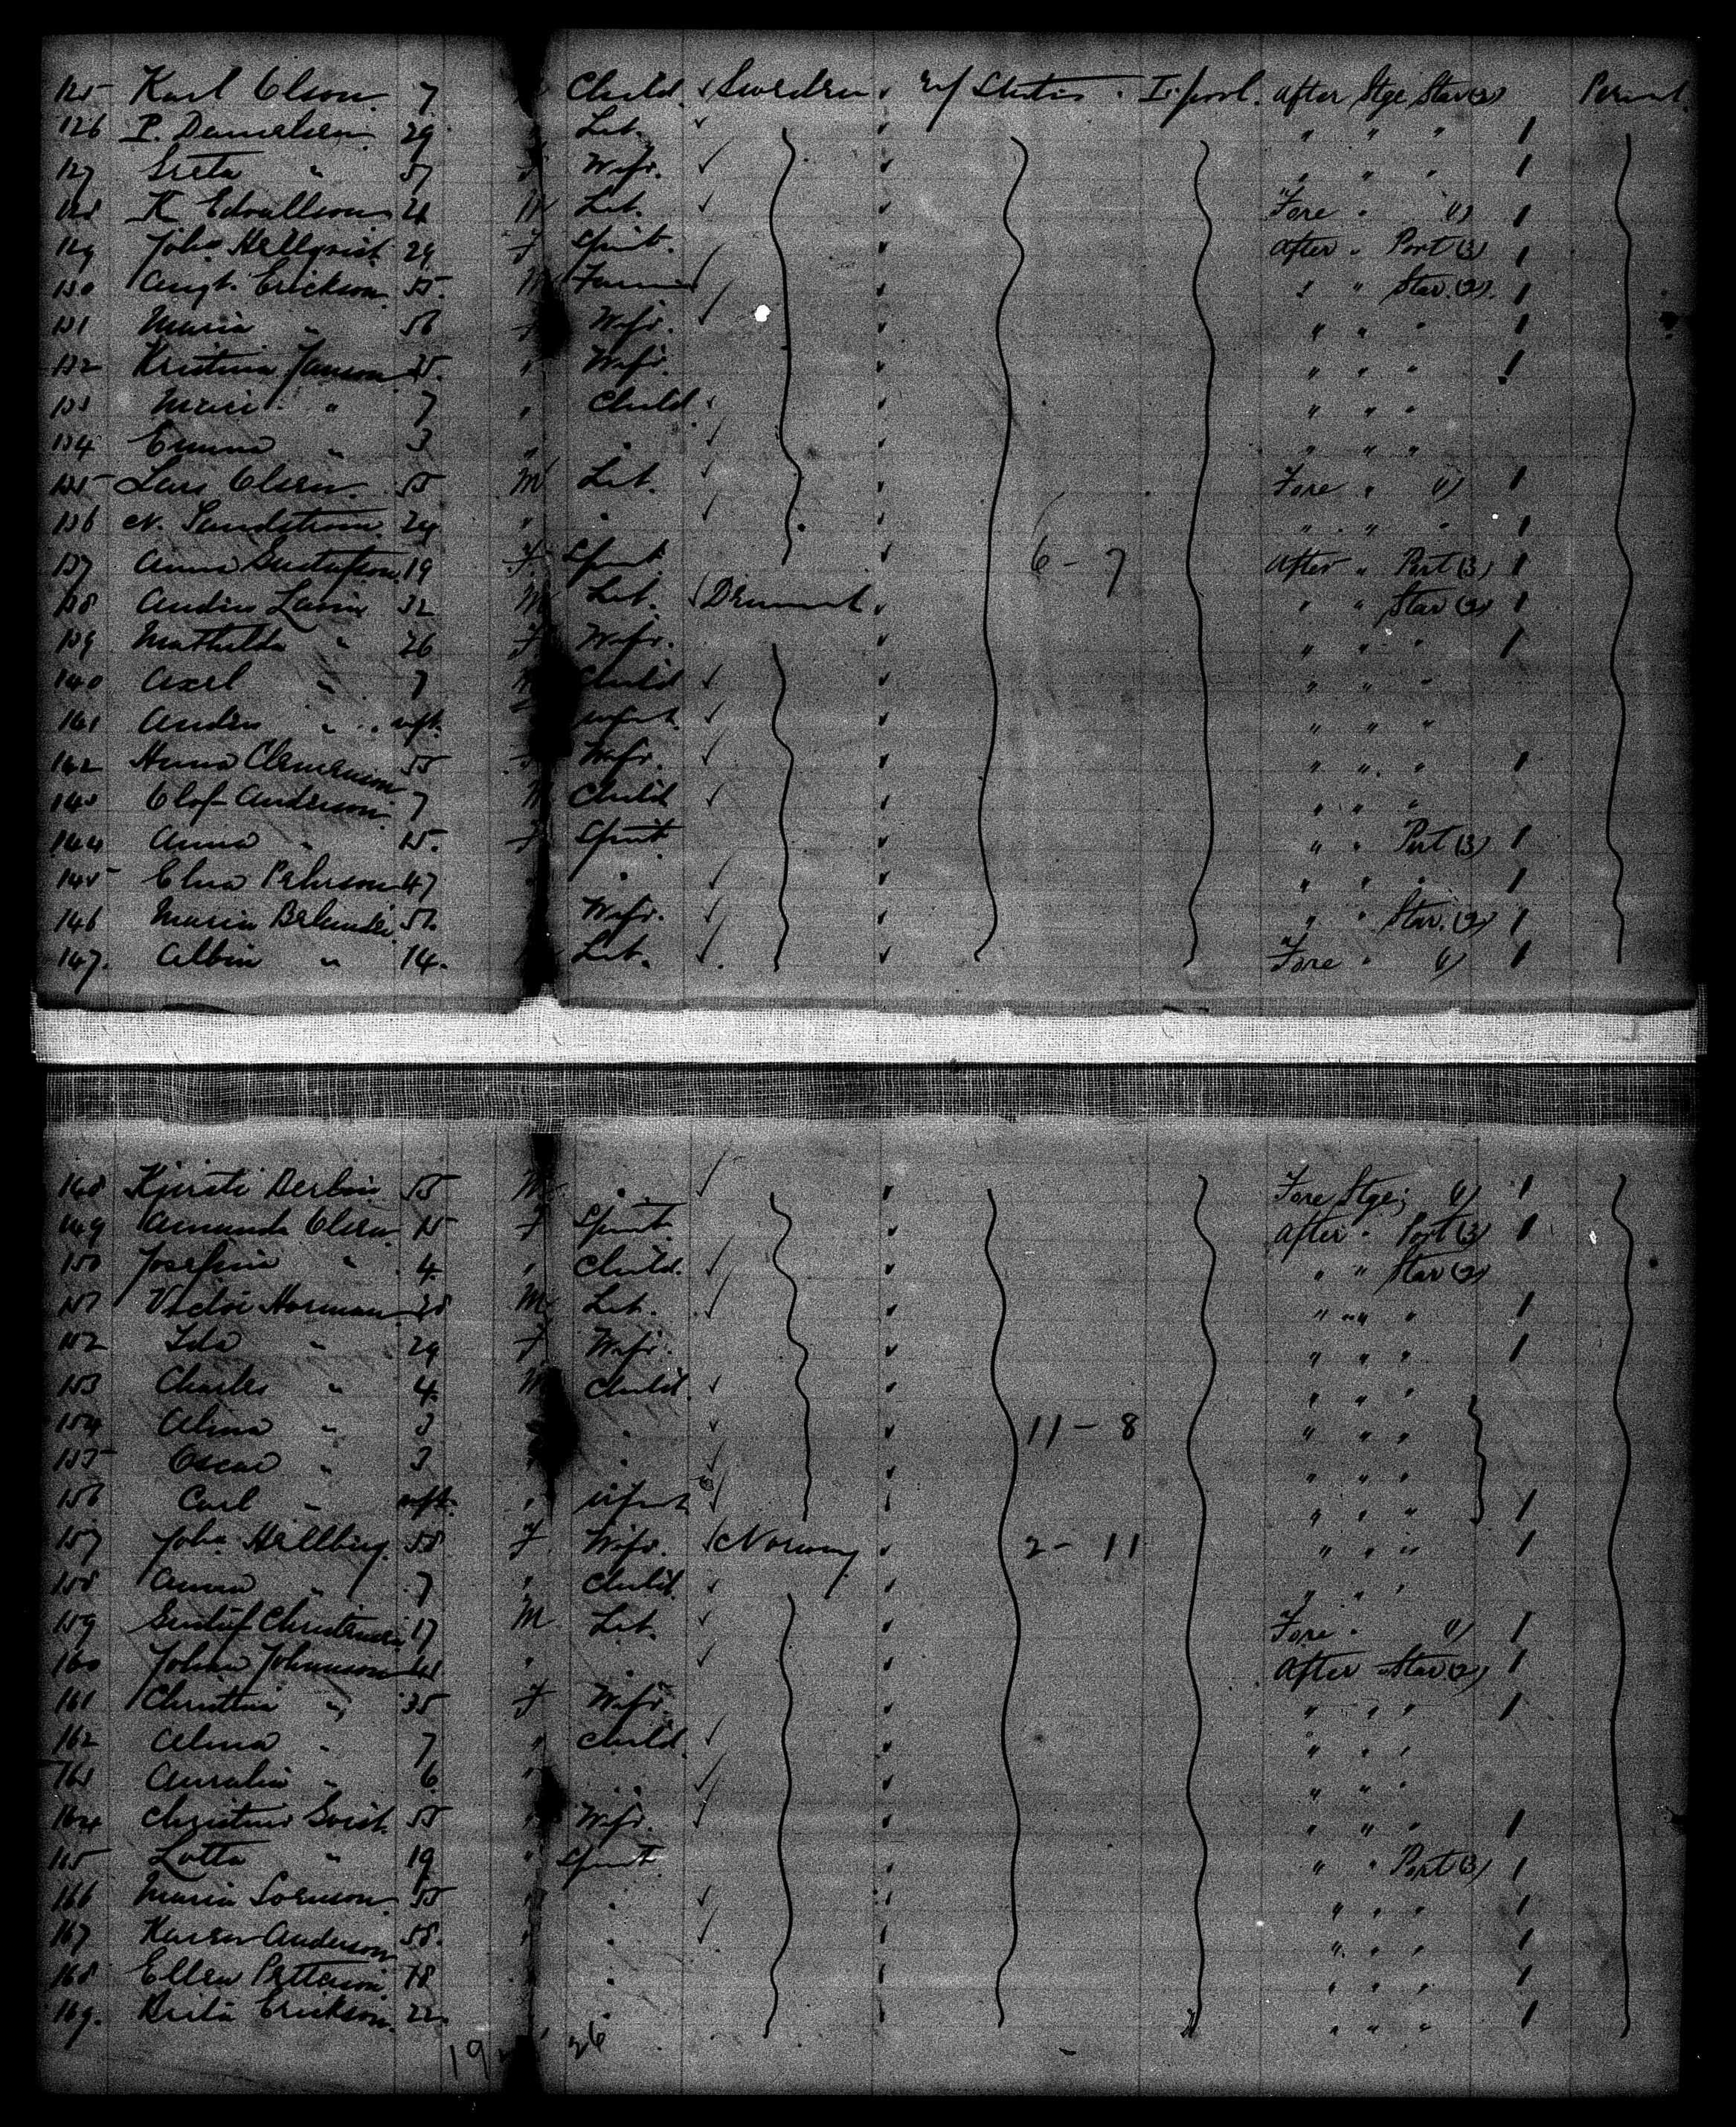 125 Karl Olson 7 Child Sweden U/States L.pool After Stge Star (2) Permt.
126 P. Danielsen 29 " Lab. " " " 1
127 Greta " 57 F Wife " " " 1
128 K 21 M Lab. Fore " (1) 1
129 Joha. Hellqvist 29 F Spinst. After " Port (3) 1
130 Augt. Erickson 55 M Farmer " " Star. (2) 1
131 Maria " 56 F Wife " " " 1
132 Kristina Janson 35 " Wife " " " 1
133 Mari " 7 " Child " " "
134 Emma " 3 " " " " "
135 Lars Olsen 55 M Lab. Fore " (1) 1
136 N. Sandstrom 24 " " " " " 1
137 Anna Gustafson 19 F Spinst. 6 - 7 After " Port (3) 1
138 32 M Lab. Denmark " " Star (2) 1
139 Mathilda " 26 F Wife " " " 1
140 Axel " 7 M Child " " "
141 Anders " inft. Infant " " "
142 Anna Clemenson 55 F Wife " " " 1
143 Olof Anderson 7 M Child " " "
144 Anna " 15 F Spinst " " Port (3) 1
145 Elna Pehrson 47 " " " " " 1
146 Maria 51 Wife " " Star. (2) 1
147. Albin " 14. Lab. Fore " (1) 1
148 Kjersti 55 M " Fore Stge; (1) 1
149 Amanda Olsen 15 F Spinst. After " Port (3) 1
150 Josefina " 4 " Child " " Star (2)
151 Victor Norman 28 M Lab. " " " 1
152 Ida " 29 F Wife " " " 1
153 Charles " 4 M Child " " "
154 Alma " 3 " " 11 - 8 " " "
155 Oscar " 3 " " " " "
156 Carl " inft. " Infant " " " 1
157 Joha. Hellberg 55 F Wife Norway 2 - 11 " " " 1
158 Anna " 7 " Child " " "
159 Gustaf Christensen 17 M Lab. Fore " (1) 1
160 Johan Johanson 41 " " After " Star (2) 1
161 Christina " 35 F Wife " " " 1
162 Alma " 7 " Child " " "
163 " 6 " " " " "
164 Christina 55 " Wife " " " 1
165 Lotta " 19 " Spinst " " Port (3) 1
166 Maria Sorenson 55 " " " " " 1
167 Karen Anderson 58 " " " " " 1
168 Ellen Petterson 18 " " " " " 1
169. Brita Erickson 22 " " " " " 1
19 26